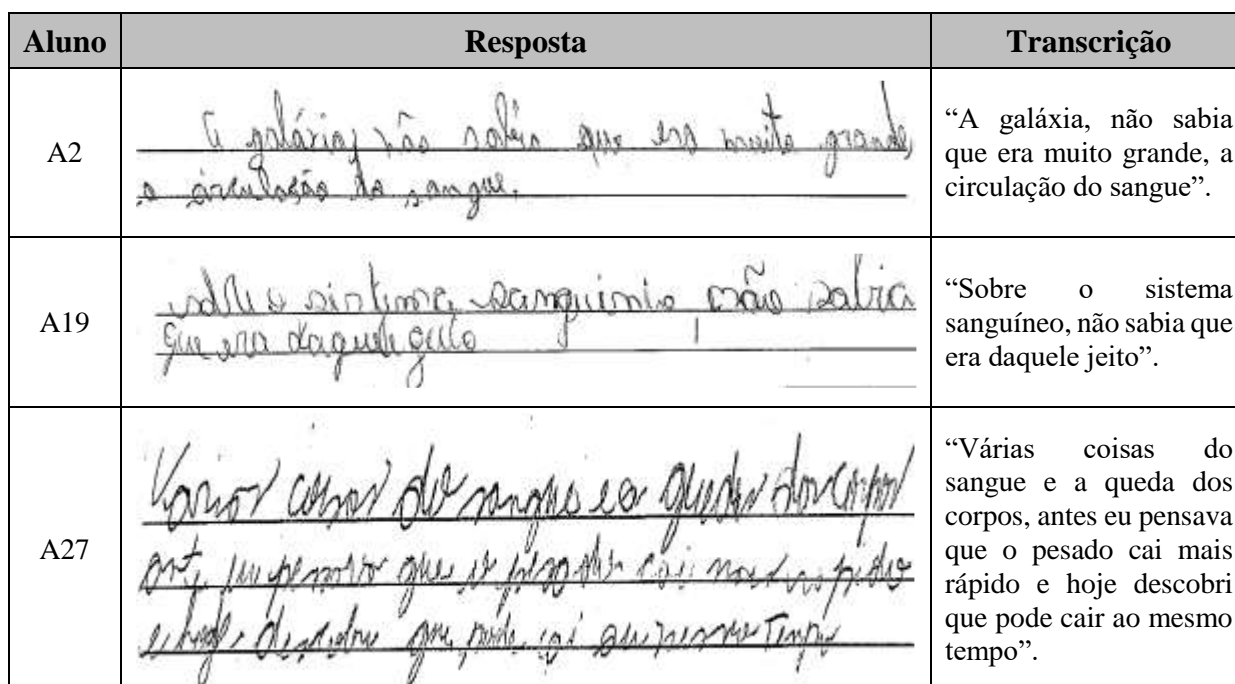 Aluno Resposta Transcrição
A2
A galáxia, não sabia que era muito grande,
a circulação do sangue.
“A galáxia, não sabia
que era muito grande, a
circulação do sangue”.
A19
sobre o sistema sanguinio não sabia
que era daquele geito
“Sobre o sistema
sanguíneo, não sabia que
era daquele jeito”.
A27
Varias coisas do sangue e a queda dos corpos
ante eu pensava que o pesado cai mais rapido
e hoje descobri que pode cai ao mesmo tempo
“Várias coisas do
sangue e a queda dos
corpos, antes eu pensava
que o pesado cai mais
rápido e hoje descobri
que pode cair ao mesmo
tempo”.